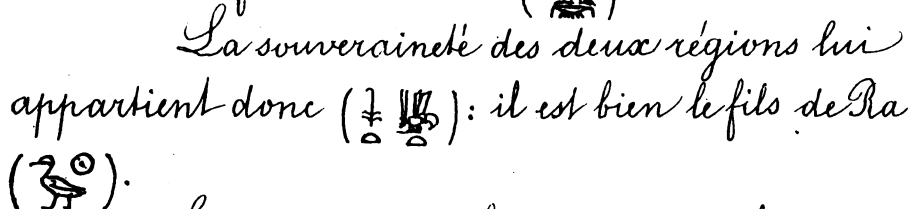 La souveraineté des deux régions lui
appartient donc (𓇓𓏏 𓆤𓏏): il est bien le fils de Ra
(𓅭𓇳).